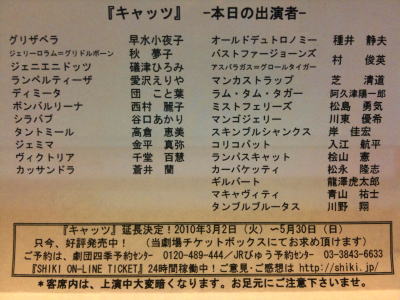 『キャッツ』 -本日の出演者-
グリザベラ 早水小夜子
ジェリーロラム=グリドルボーン 秋 夢子
ジェニエニドッツ 礒津ひろみ
ランペルティーザ 愛沢えりや
ディミータ 団 こと葉
ボンバルリーナ 西村 麗子
シラバブ 谷口あかり
タントミール 高倉 恵美
ジェミマ 金平 真弥
ヴィクトリア 千堂 百慧
カッサンドラ 蒼井 蘭
オールドデュトロノミー 種井 静夫
バストファージョーンズ
アスパラガス=グロールタイガー 村 俊英
マンカストラップ 芝 清道
ラム・タム・タガー 阿久津陽一郎
ミストフェリーズ 松島 勇気
マンゴジェリー 川東 優希
スキンブルシャンクス 岸 佳宏
コリコパット 入江 航平
ランパスキャット 桧山 憲
カーバケッティ 松永 隆志
ギルバート 龍澤虎太郎
マキャヴィティ 青山 祐士
タンブルブルータス 川野 翔
『キャッツ』 延長決定！2010年3月2日（火）～5月30日（日）
只今、好評発売中！ （当劇場チケットボックスにてお求め頂けます）
ご予約は、劇団四季予約センター 0120-489-444／JRびゅう予約センター 03-3843-6633
『SHIKI ON-LINE TICKET』24時間稼働中！ご意見・ご感想は http://shiki.jp/
*客席内は、上演中大変暗くなります。お足元にご注意下さいませ。